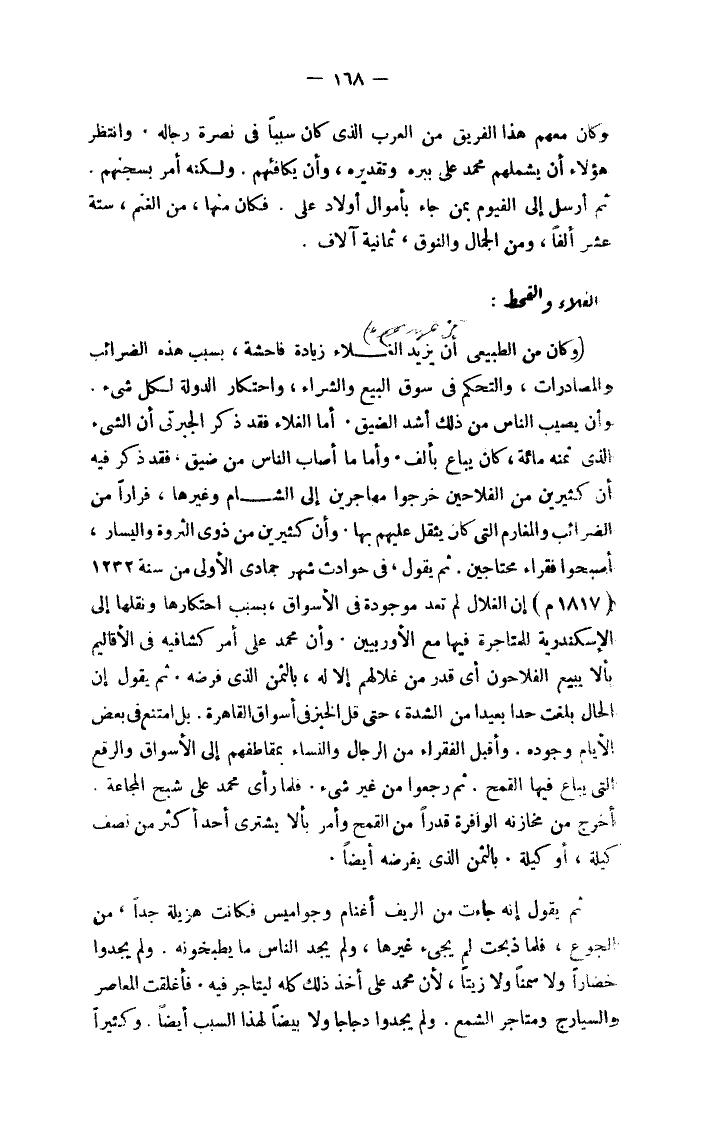 — ١٦٨ —
وكان معهم هذا الفريق من العرب الذى كان سبباً فى نصرة رجاله . وانتظر
هؤلاء أن يشملهم محمد على ببره وتقديره ، وأن يكافئهم . ولكنه أمر بسجنهم .
ثم أرسل إلى الفيوم بمن جاء بأموال أولاد على . فكان منها ، من الغنم ، ستة
عشر ألفاً ، ومن الجمال والنوق ، ثمانية آلاف .
الغلاء والقحط :
(وكان من الطبيعى أن يزيد الغلاء زيادة فاحشة ، بسبب هذه الضرائب
والمصادرات ، والتحكم فى سوق البيع والشراء ، واحتكار الدولة لكل شىء .
وأن يصيب الناس من ذلك أشد الضيق . أما الغلاء فقد ذكر الجبرتى أن الشىء
الذى ثمنه مائة ، كان يباع بألف . وأما ما أصاب الناس من ضيق . فقد ذكر فيه
أن كثيرين من الفلاحين خرجوا مهاجرين إلى الشام وغيرها ، فراراً من
الضرائب والمغارم التى كان يثقل عليهم بها . وأن كثيرين من ذوى الثروة واليسار ،
أصبحوا فقراء محتاجين . ثم يقول ، فى حوادث شهر جمادى الأولى من سنة ١٢٣٢
(١٨١٧ م) إن الغلال لم تعد موجودة فى الأسواق ، بسبب احتكارها ونقلها إلى
الإسكندرية للمتاجرة فيها مع الأوربيين . وأن محمد على أمر كشافيه فى الأقاليم
بألا يبيع الفلاحون أى قدر من غلالهم إلا له ، بالثمن الذى فرضه . ثم يقول إن
الحال بلغت حدا بعيدا من الشدة ، حتى قل الخبز فى أسواق القاهرة . بل امتنع فى بعض
الأيام وجوده . وأقبل الفقراء من الرجال والنساء بمقاطفهم إلى الأسواق والرقع
التى يباع فيها القمح . ثم رجعوا من غير شىء . فلما رأى محمد على شبح المجاعة .
أخرج من مخازنه الوافرة قدراً من القمح وأمر بألا يشترى أحد أكثر من نصف
كيلة ، أو كيلة . بالثمن الذى يفرضه أيضاً .
ثم يقول إنه جاءت من الريف أغنام وجواميس فكانت هزيلة جداً ، من
الجوع ، فلما ذبحت لم يجىء غيرها ، ولم يجد الناس ما يطبخونه . ولم يجدوا
خضاراً ولا سمناً ولا زيتاً ، لأن محمد على أخذ ذلك كله ليتاجر فيه . فأغلقت المعاصر
والسيارج ومتاجر الشمع . ولم يجدوا دجاجا ولا بيضاً لهذا السبب أيضاً . وكثيراً